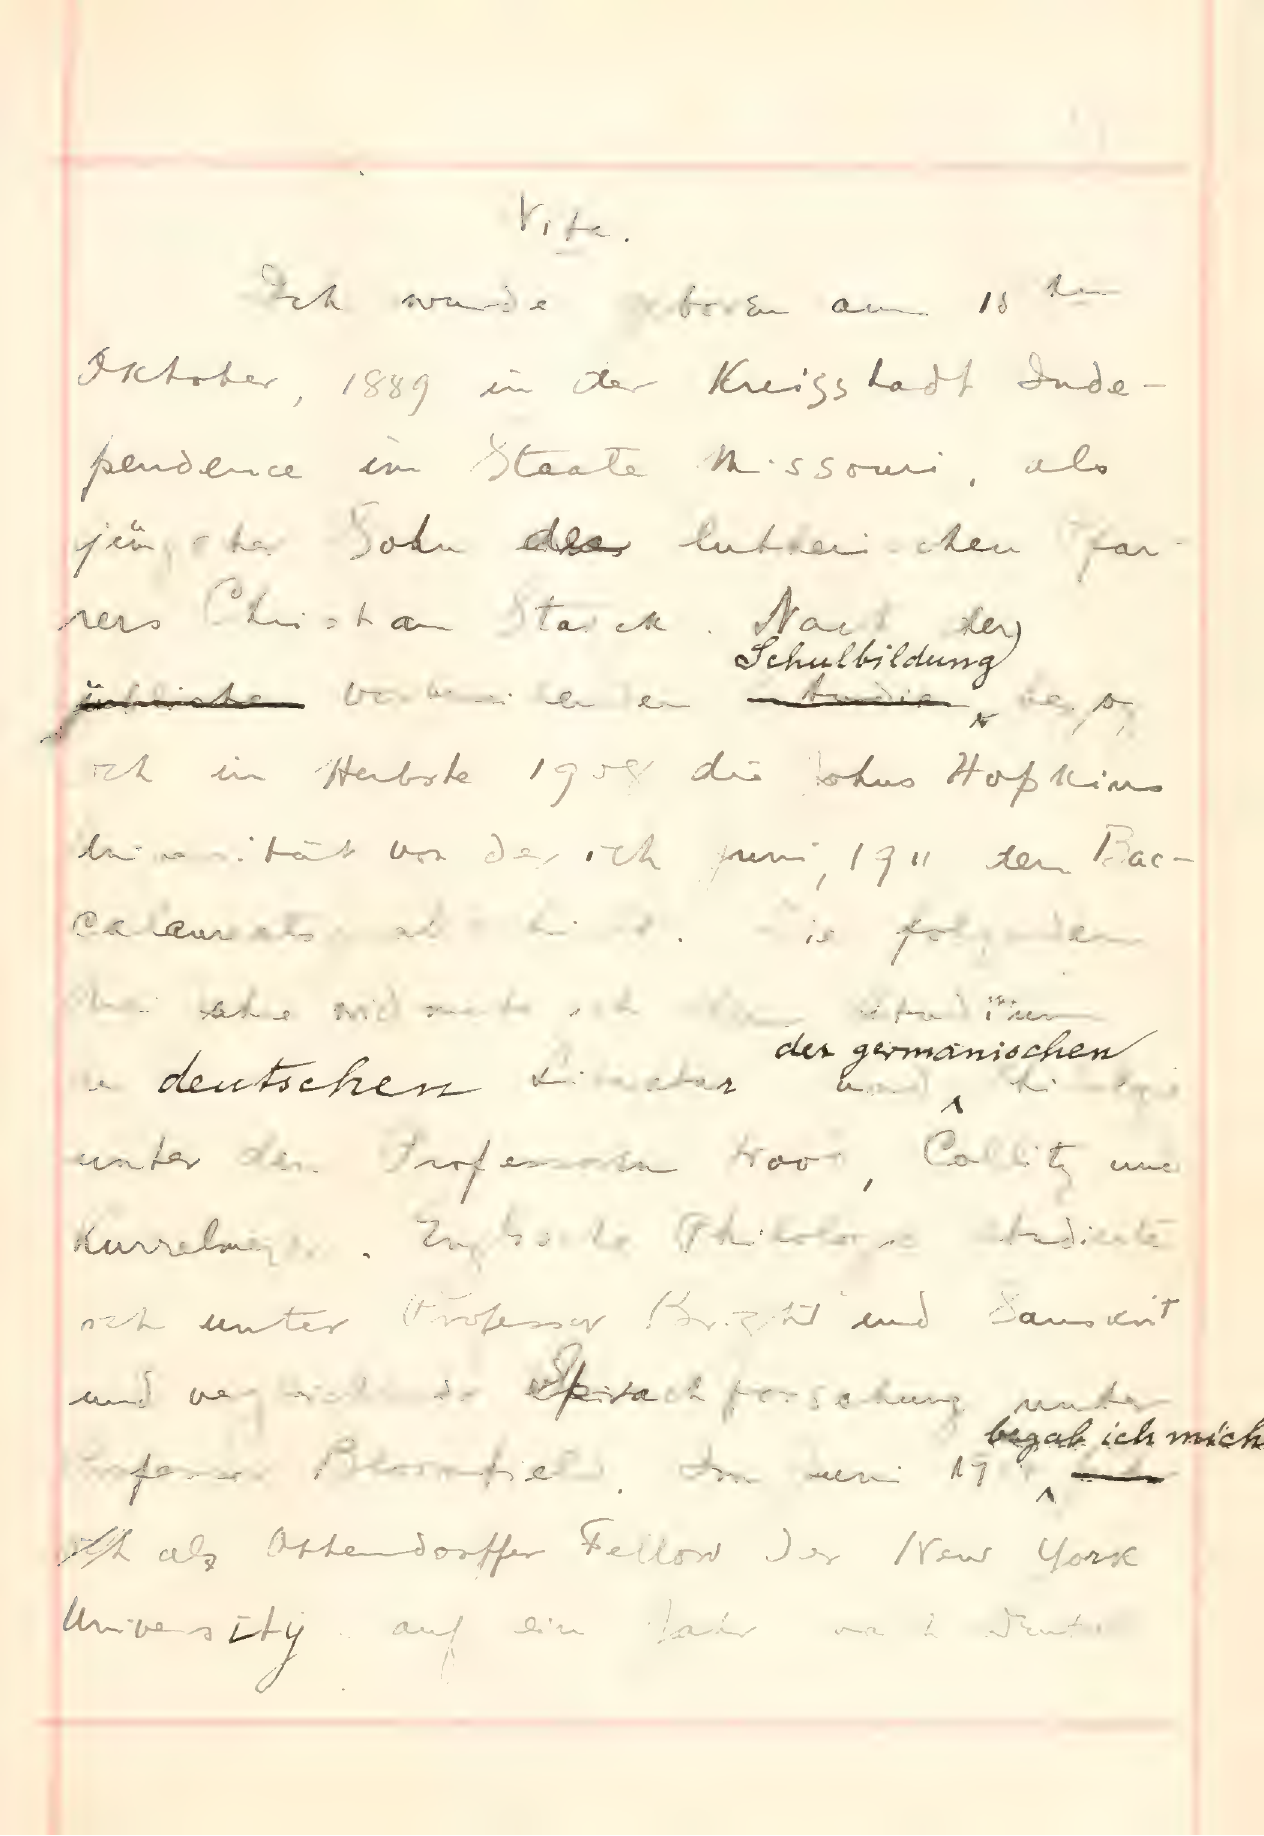 Vita.
Ich wurde geboren am 18ten
Oktober, 1889 in der Kreisstadt Inde-
pendence im Staate Missouri, als
jüngster Sohn des lutherischen Pfar-
rers Christian Starck. Nach der
Schulbildung
üblichen vorbereitenden Studien bezog
ich im Herbste 1908 die Johns Hopkins
Universität von der ich Juni, 1911 den Bac-
calaureats. Die folgenden
Jahre widmete ich dem Studium
der germanischen
der deutschen Literatur und Philologie
unter den Professoren Wood, Collitz und
Kurrelmeyer. Englische Philologie studierte
ich unter Professor Bright und Sanskrit
und vergleichende Sprachforschung unter
begab ich mich
Professor Bloomfield. Im Juni
ich als Ottendorffer Fellow der New York
University auf ein Jahr nach Deut